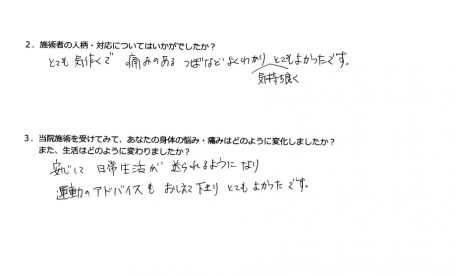 ２．施術者の人柄・対応についてはいかがでしたか？
とても 気作くで 痛みのある つぼなど よくわかり とてもよかったです。
気持ち良く
３．当院施術を受けてみて、あなたの身体の悩み・痛みはどのように変化しましたか？
また、生活はどのように変わりましたか？
安心して 日常生活が 送られるようになり
運動のアドバイスも おしえて下さり とてもよかったです。